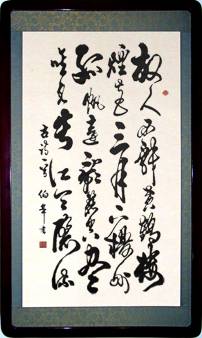 故人西辭黃鶴樓
煙花三月下揚州
孤帆遠影碧空盡
唯見長江天際流
古詩一首